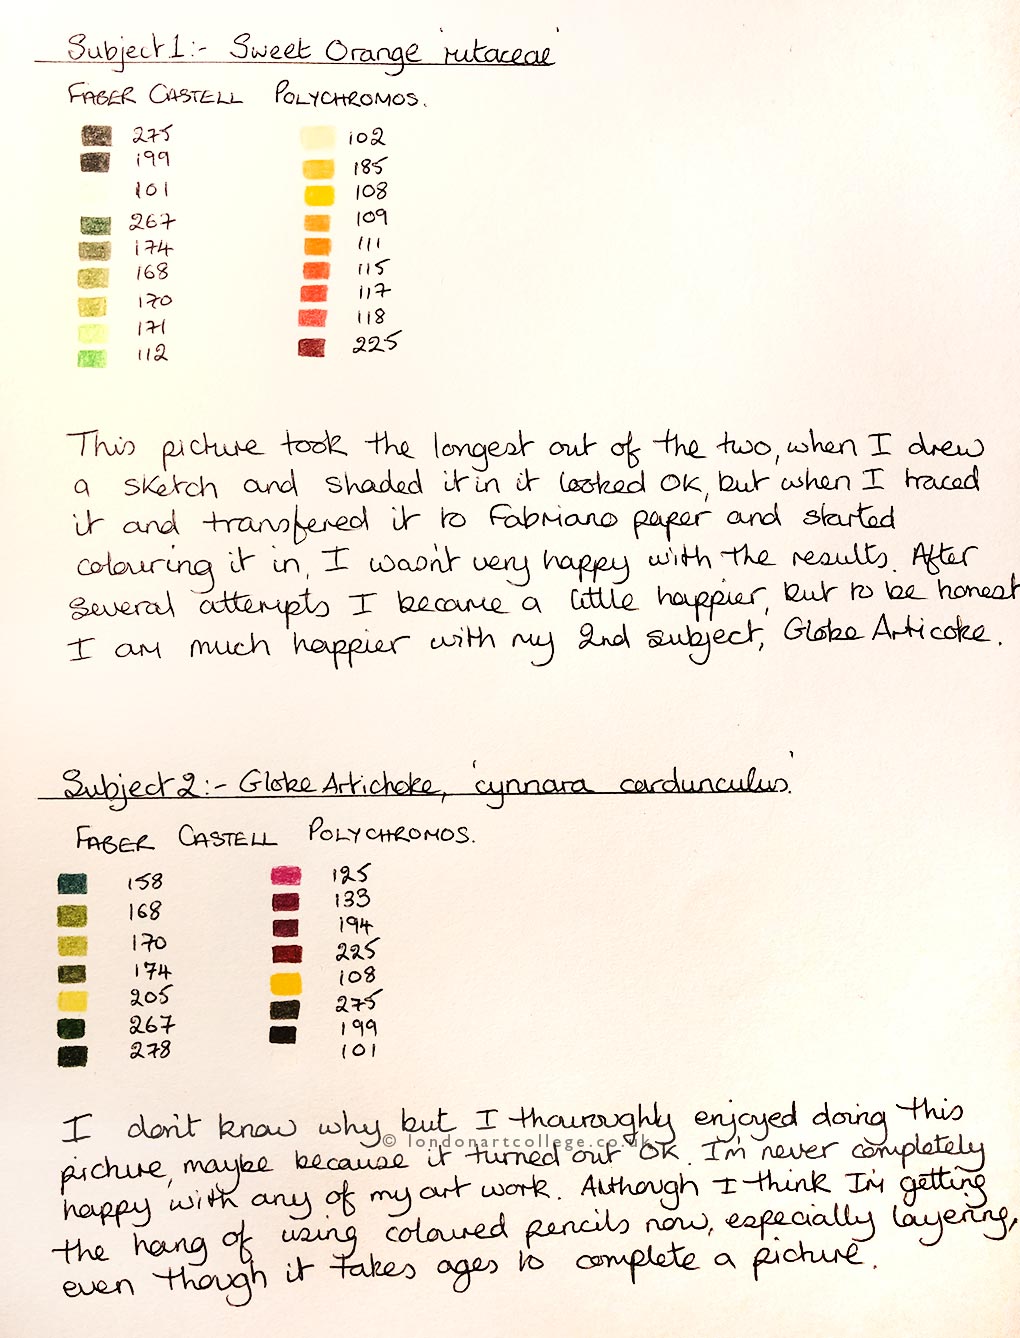 Subject 1:- Sweet Orange 'rutaceae'
FABER CASTELL POLYCHROMOS.
275 102
199 185
101 108
267 109
174 111
168 115
170 117
171 118
112 225
This picture took the longest out of the two, when I drew
a sketch and shaded it in it looked OK, but when I traced
it and transfered it to Fabriano paper and started
colouring it in, I wasn't very happy with the results. After
several attempts I became a little happier, but to be honest
I am much happier with my 2nd subject, Globe Articoke.
Subject 2:- Globe Artichoke, 'cynnara cardunculus'.
FABER CASTELL POLYCHROMOS.
158 125
168 133
170 194
174 225
205 108
267 275
278 199
101
I don't know why but I thouroughly enjoyed doing this
© londonartcollege.co.uk
picture, maybe because it turned out OK. I'm never completely
happy with any of my art work. Although I think I'm getting
the hang of using coloured pencils now, especially layering,
even though it takes ages to complete a picture.